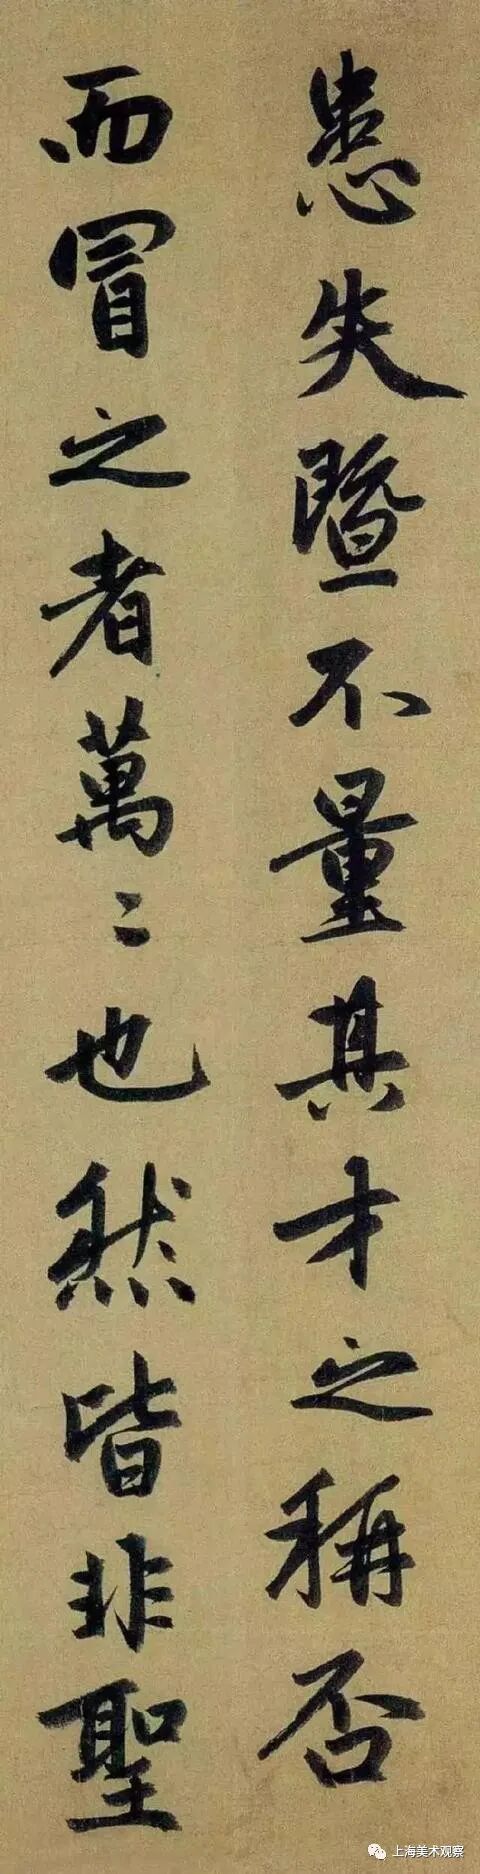 患失暨不量其才之稱否
而冒之者萬〻也然皆非聖
上海美术观察